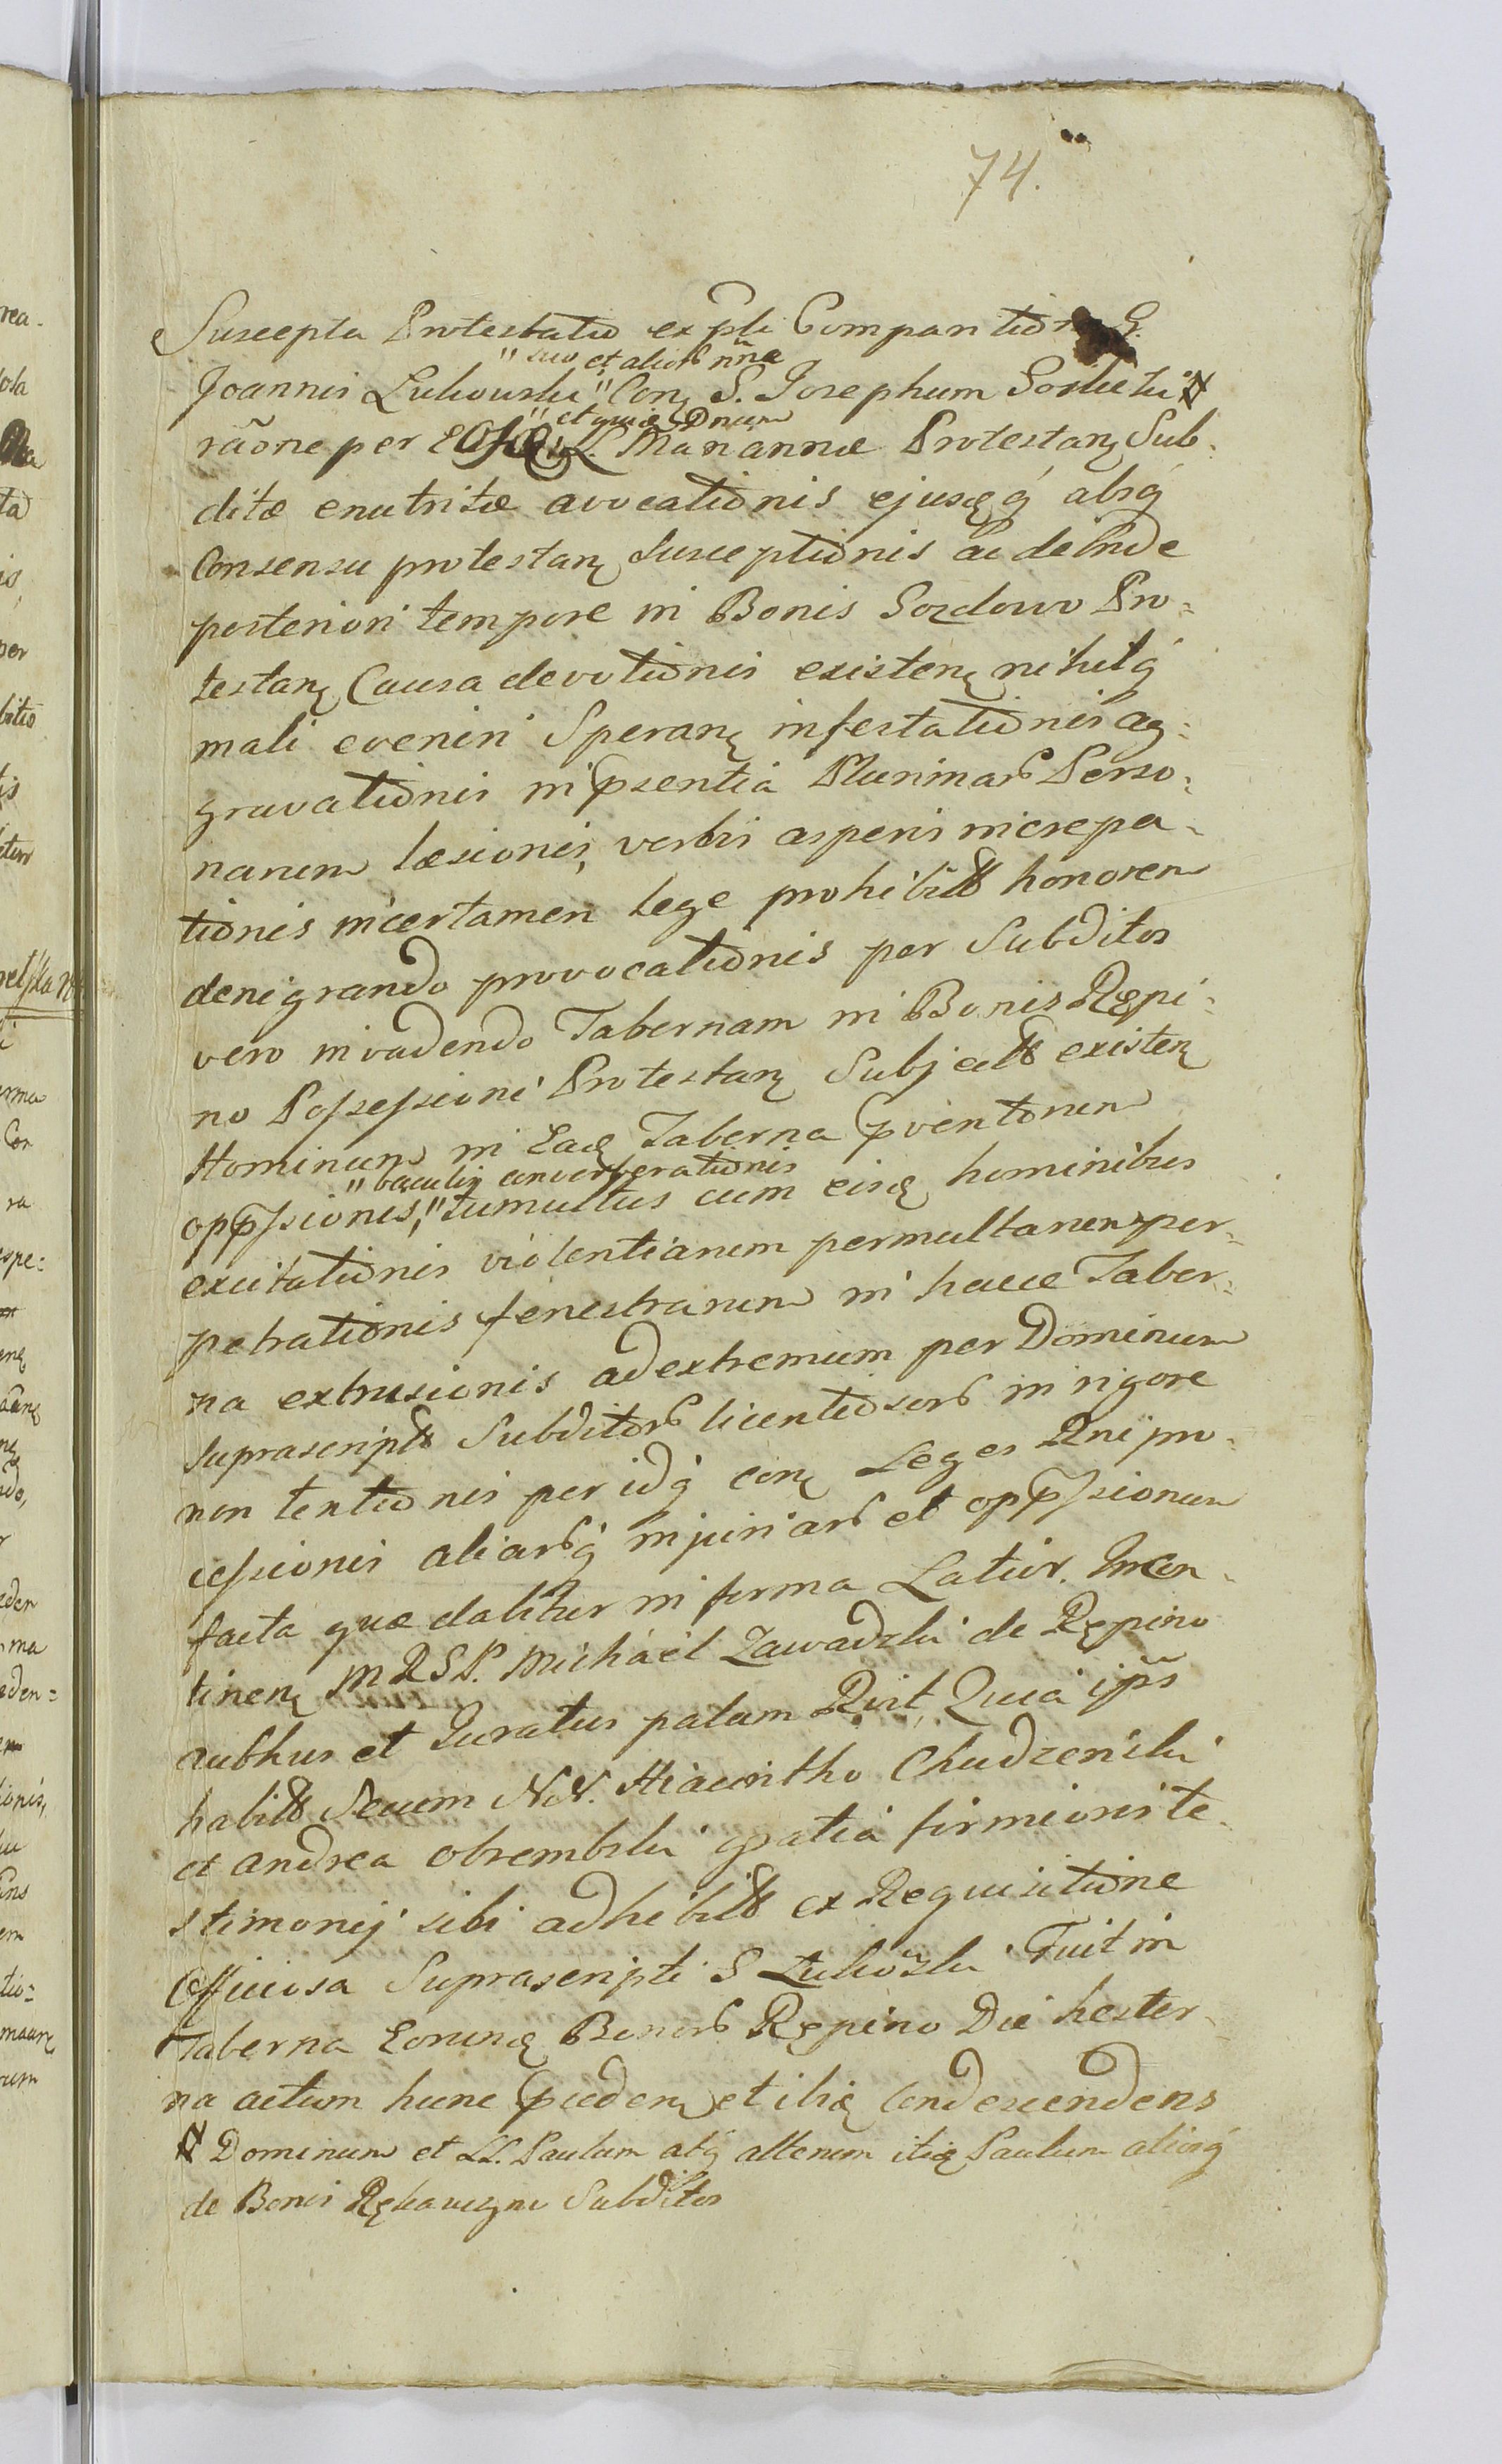 74.
Suscepta Protestatio ex pti Comparitione G.
" suo et alior nne
Joannis Lukowski " Con S. Josephum
rãone per
" et quidę Dnum
LL. Mariannæ Protestanę Sub-
ditæ enutritæ avocationis ejusęq́ absq́
Consensu protestanę susceptionis ac deinde
posteriori tempore in Bonis Sozdowo Pro-
testanę Causa devotionis existenę nihilq́
mali eveniri Speranę infestationis ag-
gravationis in pṡentia Plurimar Perso-
narum læsionis, verbis asperis increpa-
tionis in certamen lege prohibitt honorem
denigrando provocationis per Subditos
vero invadendo Tabernam in Bonis Rępi-
no Possessioni Protestanę Subjectt existenę
Hominum in Eadę Taberna pventorum
" baculis converberationis
oppssionis, " tumultus cum eisdę hominibus
excitationis violentiarum permultarum per-
petrationis fenestrarum in hacce Taber-
na extrusionis ad extremum per Dominum
suprascriptt Subditor licentiosor in rigore
non tentionis per idq́ conę Leges Rni pro-
cessionis aliarq́ injuriar et oppssionum
facta quæ dabitur in forma Latior. Incon-
tinenę M R S P. Michaël Zawadzki de Rępino
authus et Juratus palam Rvit, Quia ipse
habitt Secum NN. Hiacintho Chudzeński
et Andrea Obrembski gratia firmioris te-
stimonij sibi adhibitt ex Requisitione
Officiosa Suprascripti G Łukowski Fuit in
Taberna Eorundę Bonor Rępino Die hester-
na actum hunc pcedenę et ibidę Condescendens
Dominum et LL. Paulum atq́ alterum itidę Paulum aliosq́
de Bonis Rękawczyn Subditos